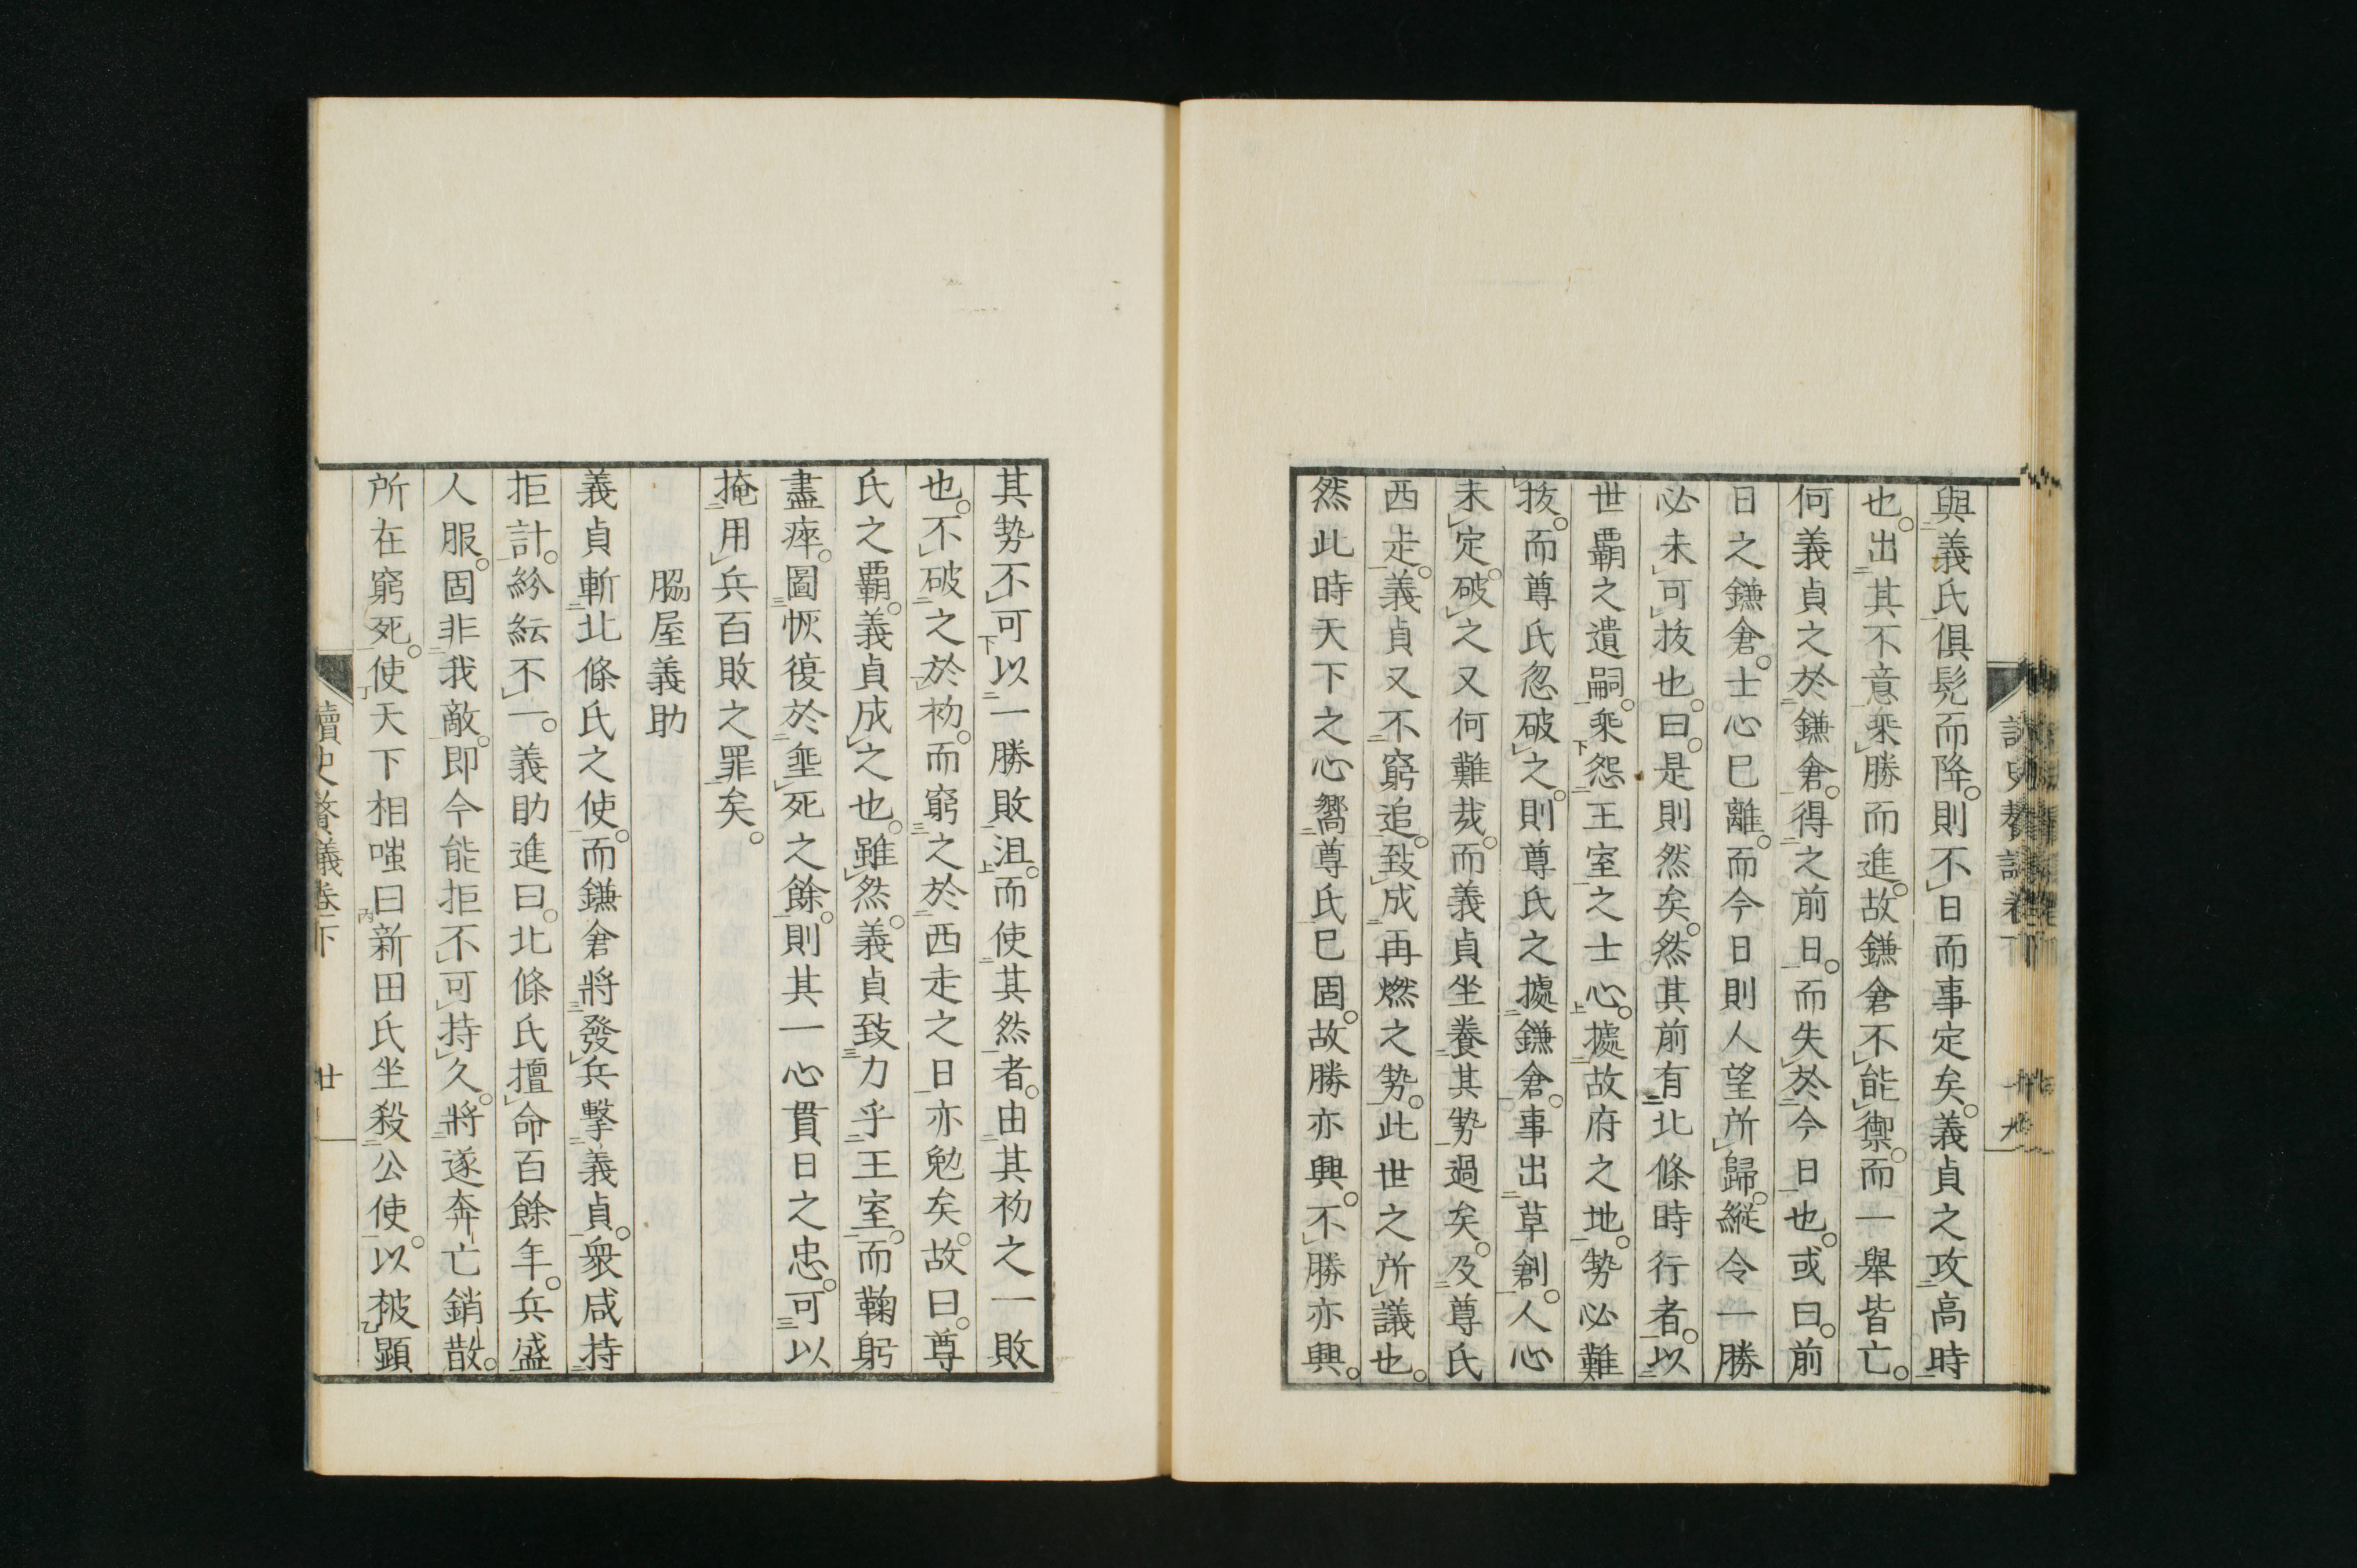 與義氏俱髡而降。則不日而事定矣。義貞之攻高時
也。出其不意乘勝而進。故鎌倉不能禦。而一舉皆亡。
何義貞之於鎌倉。得之前日。而失於今日也。或曰。前
日之鎌倉。士心已離。而今日則人望所歸。縱令一勝
必未可拔也。曰。是則然矣。然其前有北條時行者。以
世霸之遺嗣。乘怨王室之士心。據故府之地。勢必難
拔。而尊氏忽破之。則尊氏之據鎌倉。事出草創。人心
未定。破之又何難哉。而義貞坐養其勢過矣。及尊氏
西走。義貞又不窮追。致成再燃之勢。此世之所議也。
然此時天下之心嚮尊氏已固。故勝亦興。不勝亦興。
十九
其勢不可以一勝敗沮。而使其然者。由其初之一敗
也。不破之於初。而窮之於西走之日亦勉矣。故曰。尊
氏之霸。義貞成之也。雖然。義貞致力乎王室。而鞠躬
盡瘁。圖恢復於垂死之餘。則其一心貫日之忠。可以
掩用兵百敗之罪矣。
脇屋義助
義貞斬北條氏之使。而鎌倉將發兵擊義貞。衆咸持
拒計。紛紜不一。義助進曰。北條氏擅命百餘年。兵盛
人服。固非我敵。即今能拒不可持久。將遂奔亡銷散。
所在窮死。使天下相嗤曰新田氏坐殺公使。以被顯
讀史贅議卷下
廿